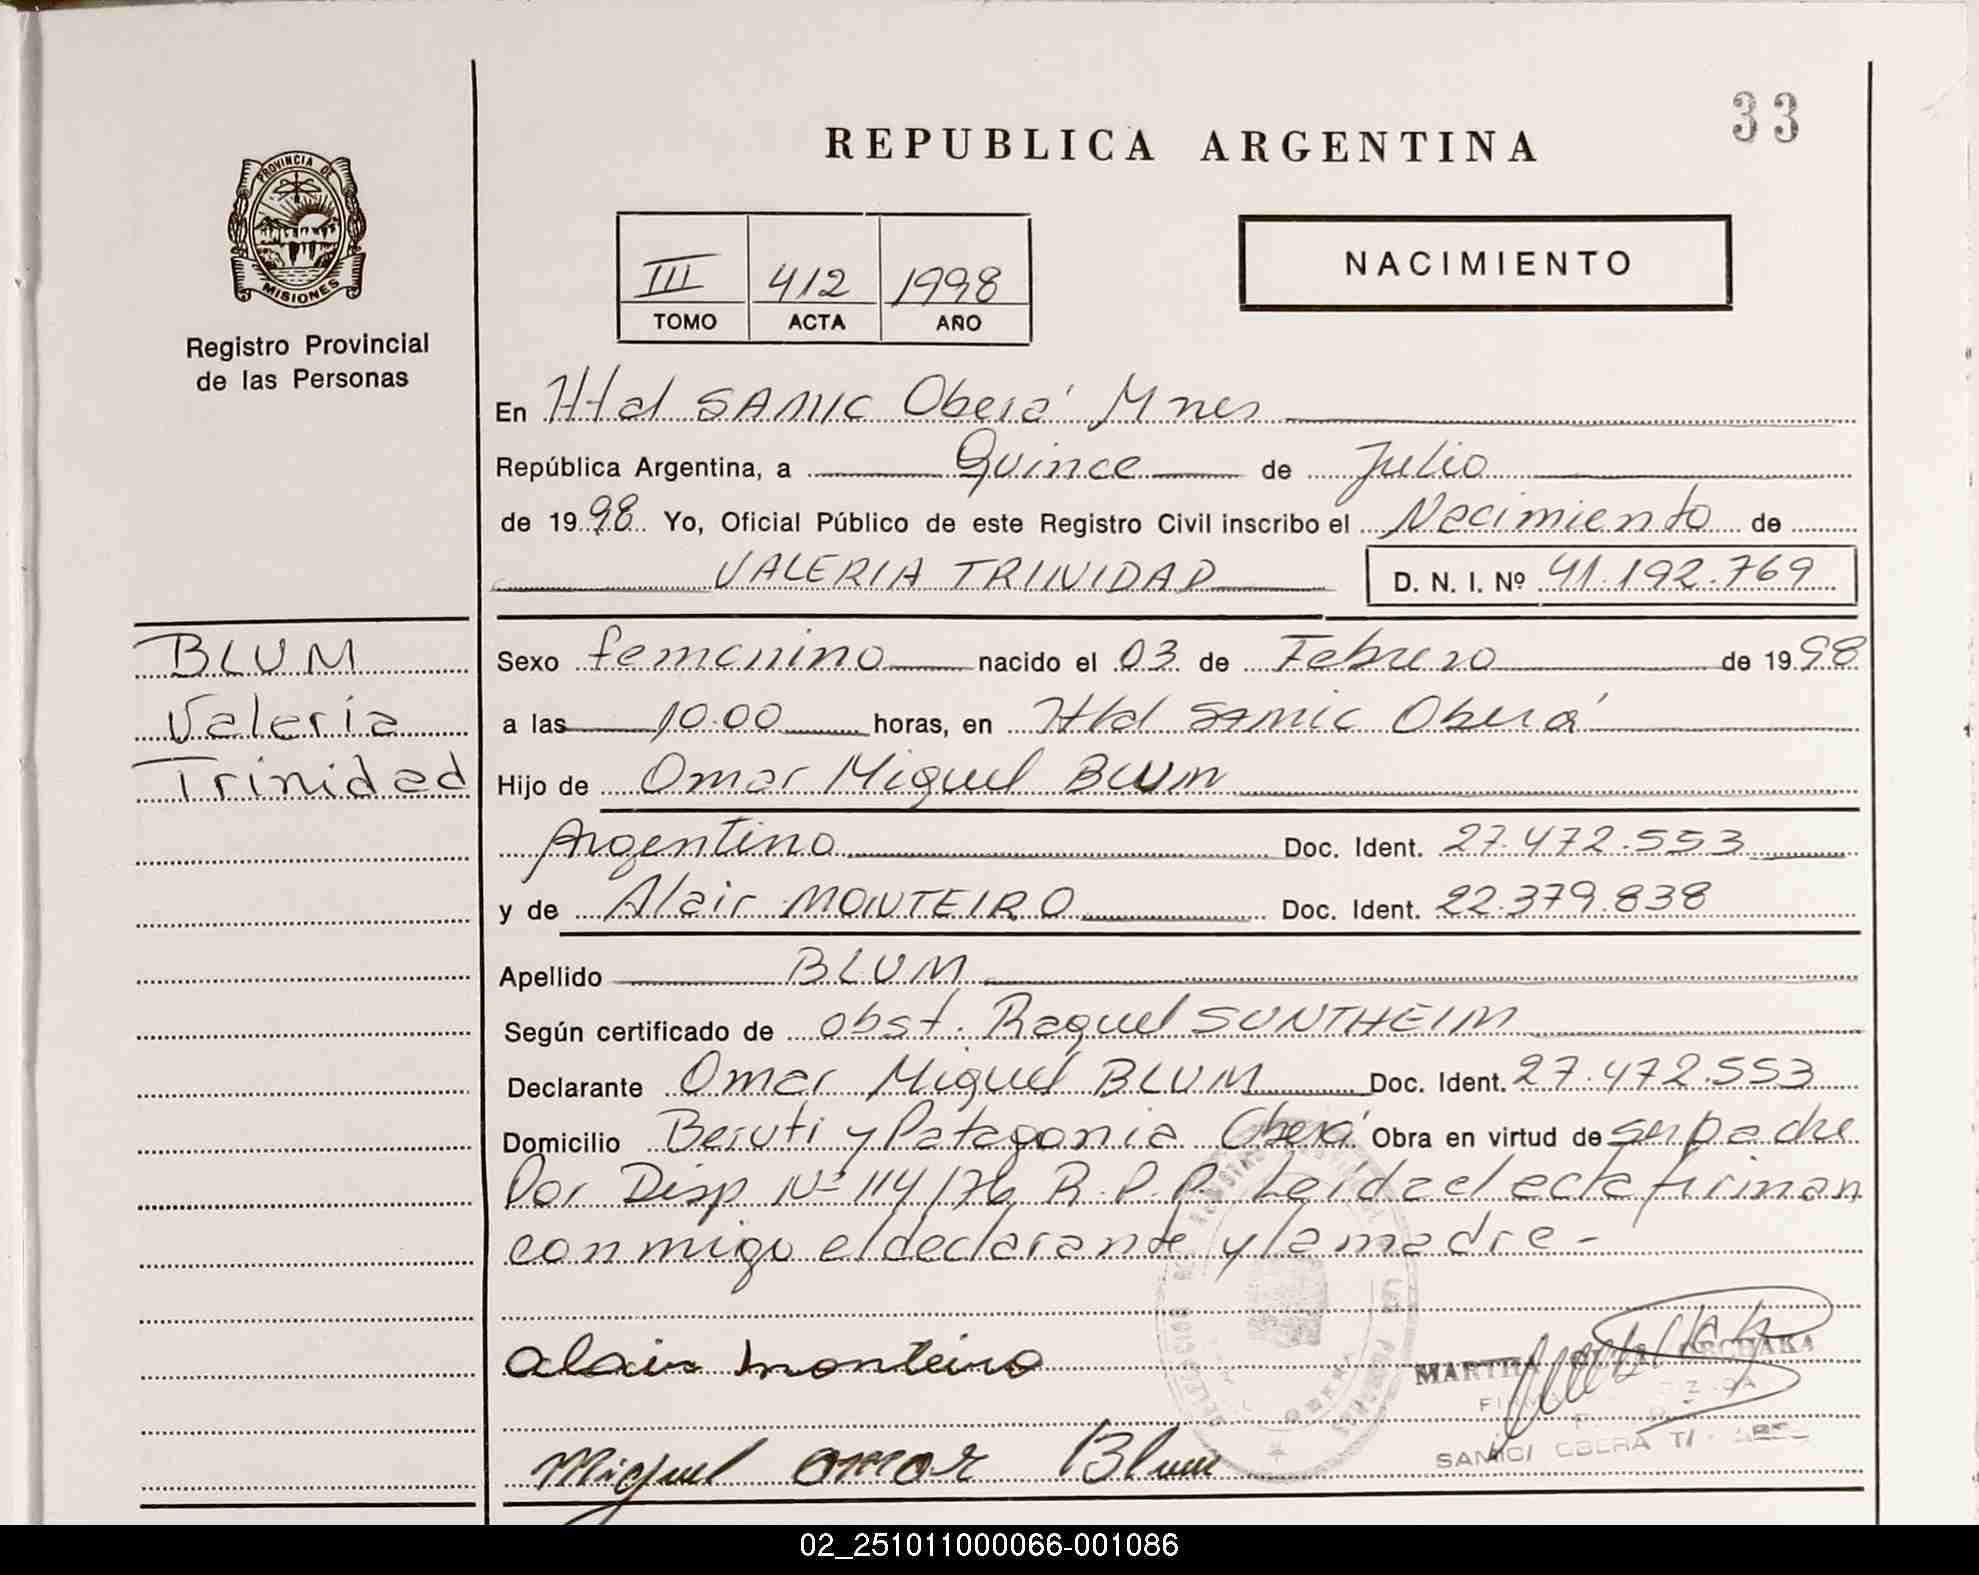 33
REPUBLICA ARGENTINA
PROVINCIA DE
MISIONES
Registro Provincial
de las Personas
III 412 1998
TOMO ACTA AÑO
NACIMIENTO
En Htal SAMIC Oberá Mnes
República Argentina, a Quince de Julio
de 1998 Yo, Oficial Público de este Registro Civil inscribo el Nacimiento de
VALERIA TRINIDAD D. N. I. Nº 41.192.769
BLUM
Valeria
Trinidad
Sexo femenino nacido el 03 de Febrero de 1998
a las 10.00 horas, en Htal SAMIC Oberá
Hijo de Omar Miguel BLUM
Argentino Doc. Ident. 27.472.553
y de Alair MONTEIRO Doc. Ident. 22.379.838
Apellido BLUM
Según certificado de obst. Raquel SUNTHEIM
Declarante Omar Miguel BLUM Doc. Ident. 27.472.553
Domicilio Beruti y Patagonia Oberá Obra en virtud de ser padre
Por Disp Nº 114/76 R.P.P. Leida el acta firman
conmigo el declarante y la madre -
alair monteiro
MARTHA
Miguel omar Blum
SAMIC OBERA
02_251011000066-001086